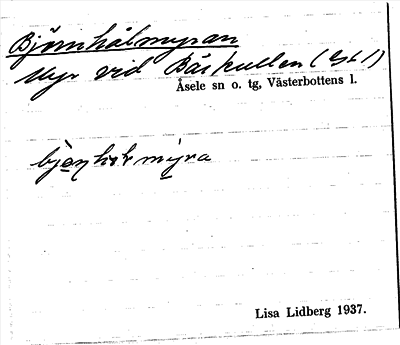 Björnhålmyran
Myr vid Båskullen (Gbl)
Åsele sn o. tg, Västerbottens l.
Lisa Lidberg 1937.